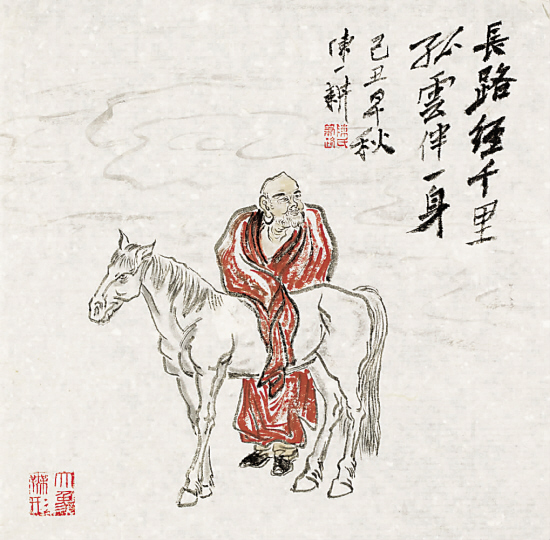 長路經千里
孤雲伴一身
己丑早秋
陳一耕
大象
無形